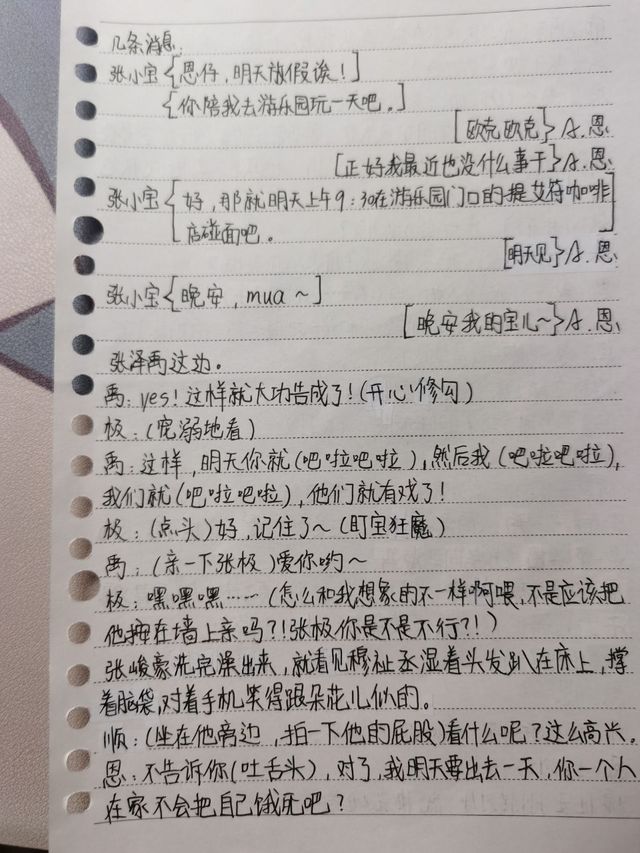 几条消息:
张小宝{恩仔,明天放假诶!]
{你陪我去游乐园玩一天吧。]
[欧克欧克}A.恩
[正好我最近也没什么事干}A.恩
张小宝{好,那就明天上午9:30在游乐园门口的提艾符咖啡
店碰面吧。
[明天见}A.恩
张小宝{晚安,mua~]
[晚安我的宝儿~}A.恩
张泽禹这边。
禹:yes!这样就大功告成了!(开心修勾)
极:(宠溺地看)
禹:这样,明天你就(吧啦吧啦),然后我(吧啦吧啦),
我们就(吧啦吧啦),他们就有戏了!
极:(点头)好,记住了~(盯宝狂魔)
禹:(亲一下张极)爱你哟~
极:嘿嘿嘿……(怎么和我想象的不一样啊喂,不是应该把
他按在墙上亲吗?!张极你是不是不行?!)
张峻豪洗完澡出来,就看见穆祉丞湿着头发趴在床上,撑
着脑袋,对着手机笑得跟朵花儿似的。
顺:(坐在他旁边,拍一下他的屁股)看什么呢?这么高兴。
恩:不告诉你(吐舌头),对了,我明天要出去一天,你一个人
在家不会把自己饿死吧?